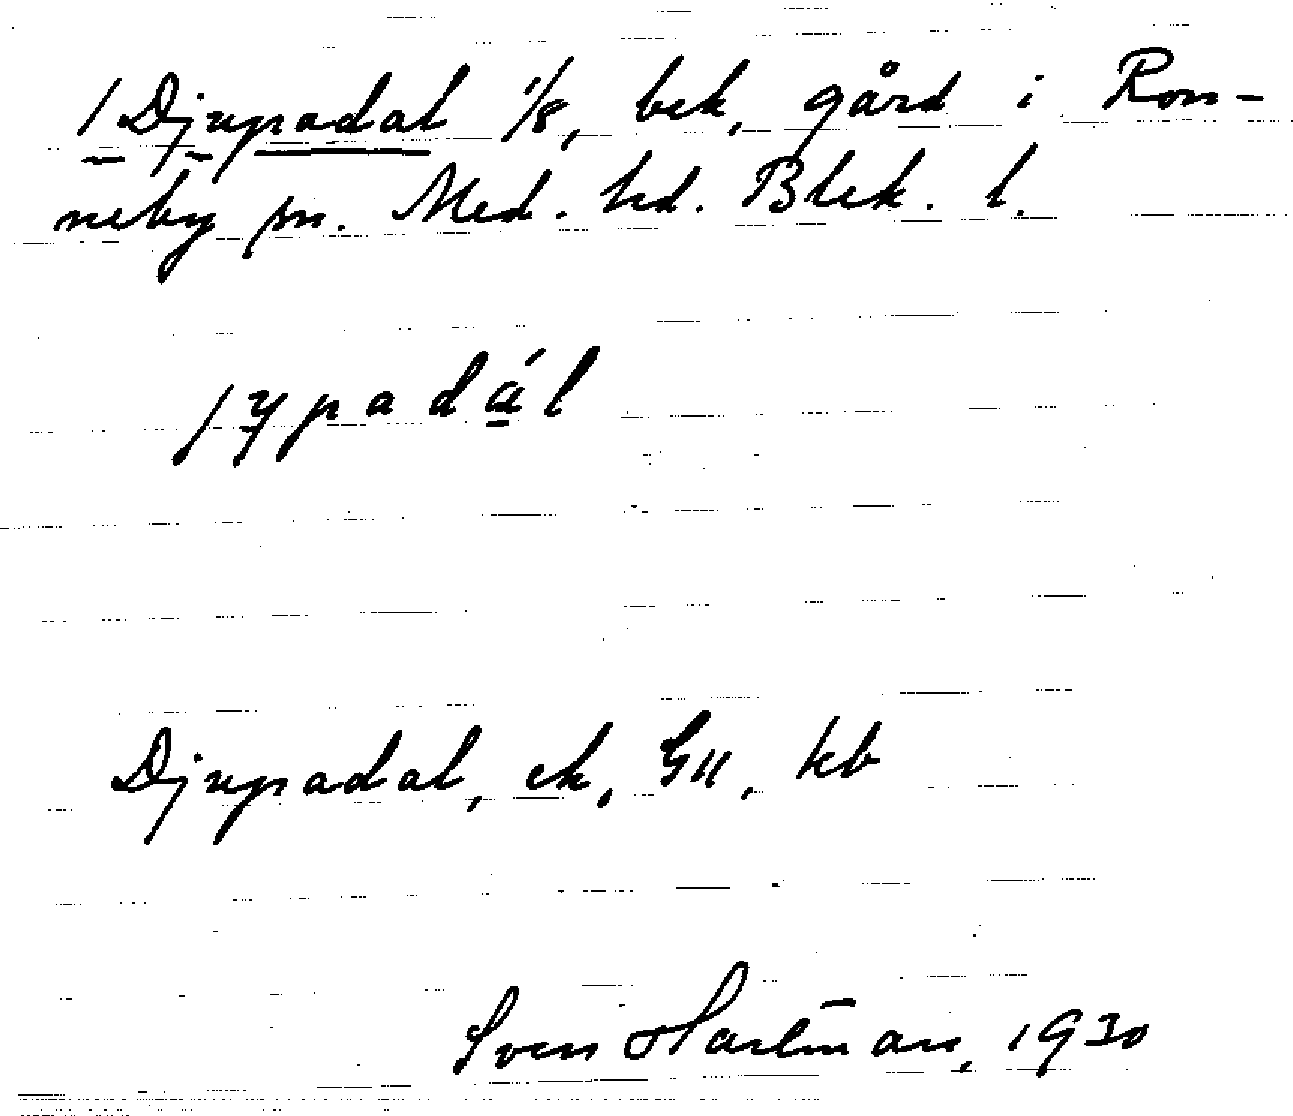 1 Djupadal 1/8, bek, gård i Ron-
neby sn. Med. hd. Blek. l.
jypadál
Djupadal, ek, GK, kb
Sven Hartman, 1930